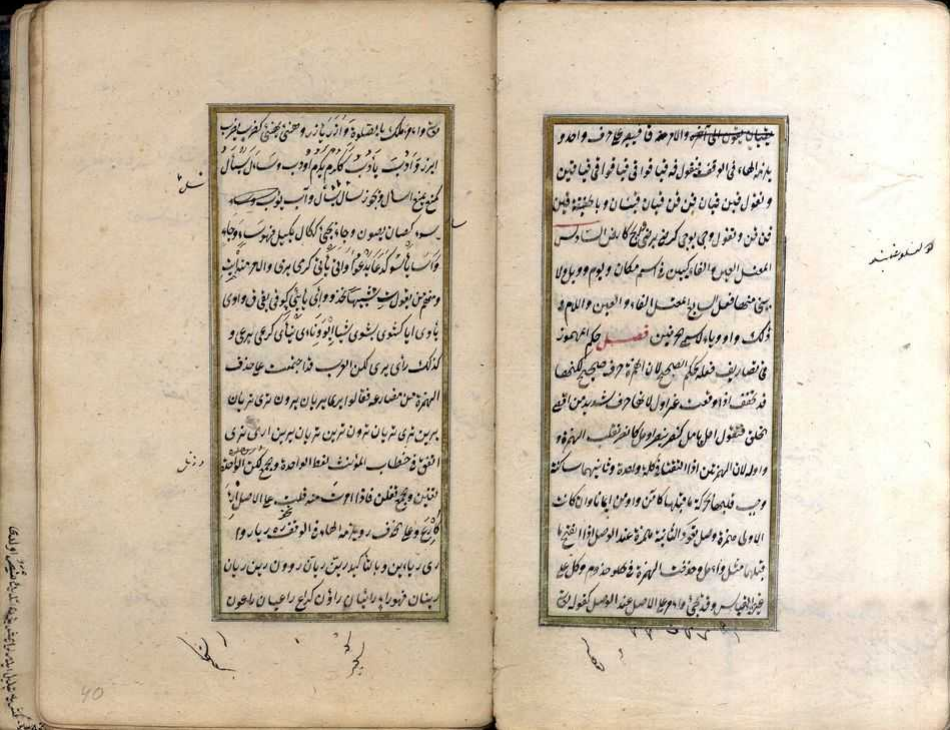 قينان يقول الى آخره والامر منه ق فيصير على حرف واحد و
يلزمه الهاء في الوقف فتقول قه قيا قوا قي قيا قوا قي قيا قين
وتقول قين قيان قن قن قيان قينان وبالخفيفة قين
قن قن وتقول وجي يوجى كرضي يرضى ايج كارض السادس
المعتل العين والفاء كيين في اسم مكان ويوم وويل ولا
يبنى منهما فعل السابع المعتل الفاء والعين واللام و
ذلك واو وياء لاسمي الحرفين فصل حكم المهموز
في تصاريف فعله كحكم الصحيح لان الهمزة حرف صحيح لكنها
قد تخفف اذا وقعت غير اول لانها حرف شديد من اقصى
الحلق فتقول امل يأمل كنصر ينصر اومل كانصر بقلب الهمزة و
واوا لان الهمزتين اذا التقتا في كلمة واحدة وثانيهما ساكنة
وجب قلبها بحركة ما قبلها كآمن واومن ايمانا وان كانت
الاولى همزة وصل تعود الثانية همزة عند الوصل اذا انفتح ما
قبلها وحذفت الهمزة في خذ ومر وكل على
غير القياس وقد يجئ وأمر على الاصل عند الوصل كقوله تع
وأمر اهلك بالصلوة وازر يازر وهنئ يهنئ كضرب يضرب
ايزر وأدب يأدب ككرم يكرم اودب وسأل يسأل
كمنع يمنع اسأل ويجوز سال يسال وآب يؤب وساء
يسوء كصان يصون وجاء يجئ ككال يكيل فهو ساء وجاء
وأسا يأسو كدعا يدعو واتى يأتي كرمى يرمي والامر منه ايت
ومنهم من يقول ت تشبيها بخذ ووأى يأي كوقى يقي ق واوى
يأوي ايا كشوى يشوي شيا ايو ونأى ينأى كرعى يرعى و
كذلك رأى يرى لكن العرب قد اجتمعت على حذف
الهمزة من مضارعه فقالوا يرى يريان يرون ترى تريان
يرين ترى تريان ترون ترين تريان ترين ارى نرى
اتفق في خطاب المؤنث لفظ الواحدة والجمع لكن الواحدة
تفين والجمع تفلن فاذا امرت منه قلت على الاصل ارء
كارع وعلى الحذف ر ويلزمه الهاء في الوقف ره ريا روا
ري ريا رين وبالتأكيد رين ريان رون رين ريان
رينان فهو راء رائيان راؤن كراع راعيان راعون
40